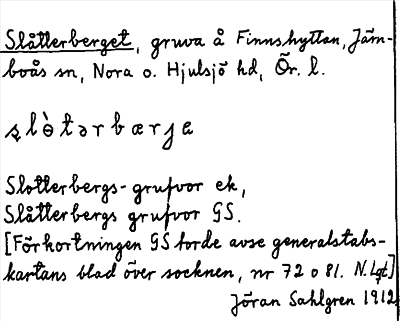 Slåtterberget, gruva å Finnshyttan, Järn-
boås sn, Nora o. Hjulsjö hd, Ör. l.
s̩lòtərbærjɛ
Slotterbergs-grufvor ek,
Slåtterbergs grufvor GS.
[Förkortningen GS torde avse generalstabs-
kartans blad över socknen, nr 72 o 81. N. Lgt]
Jöran Sahlgren 1912